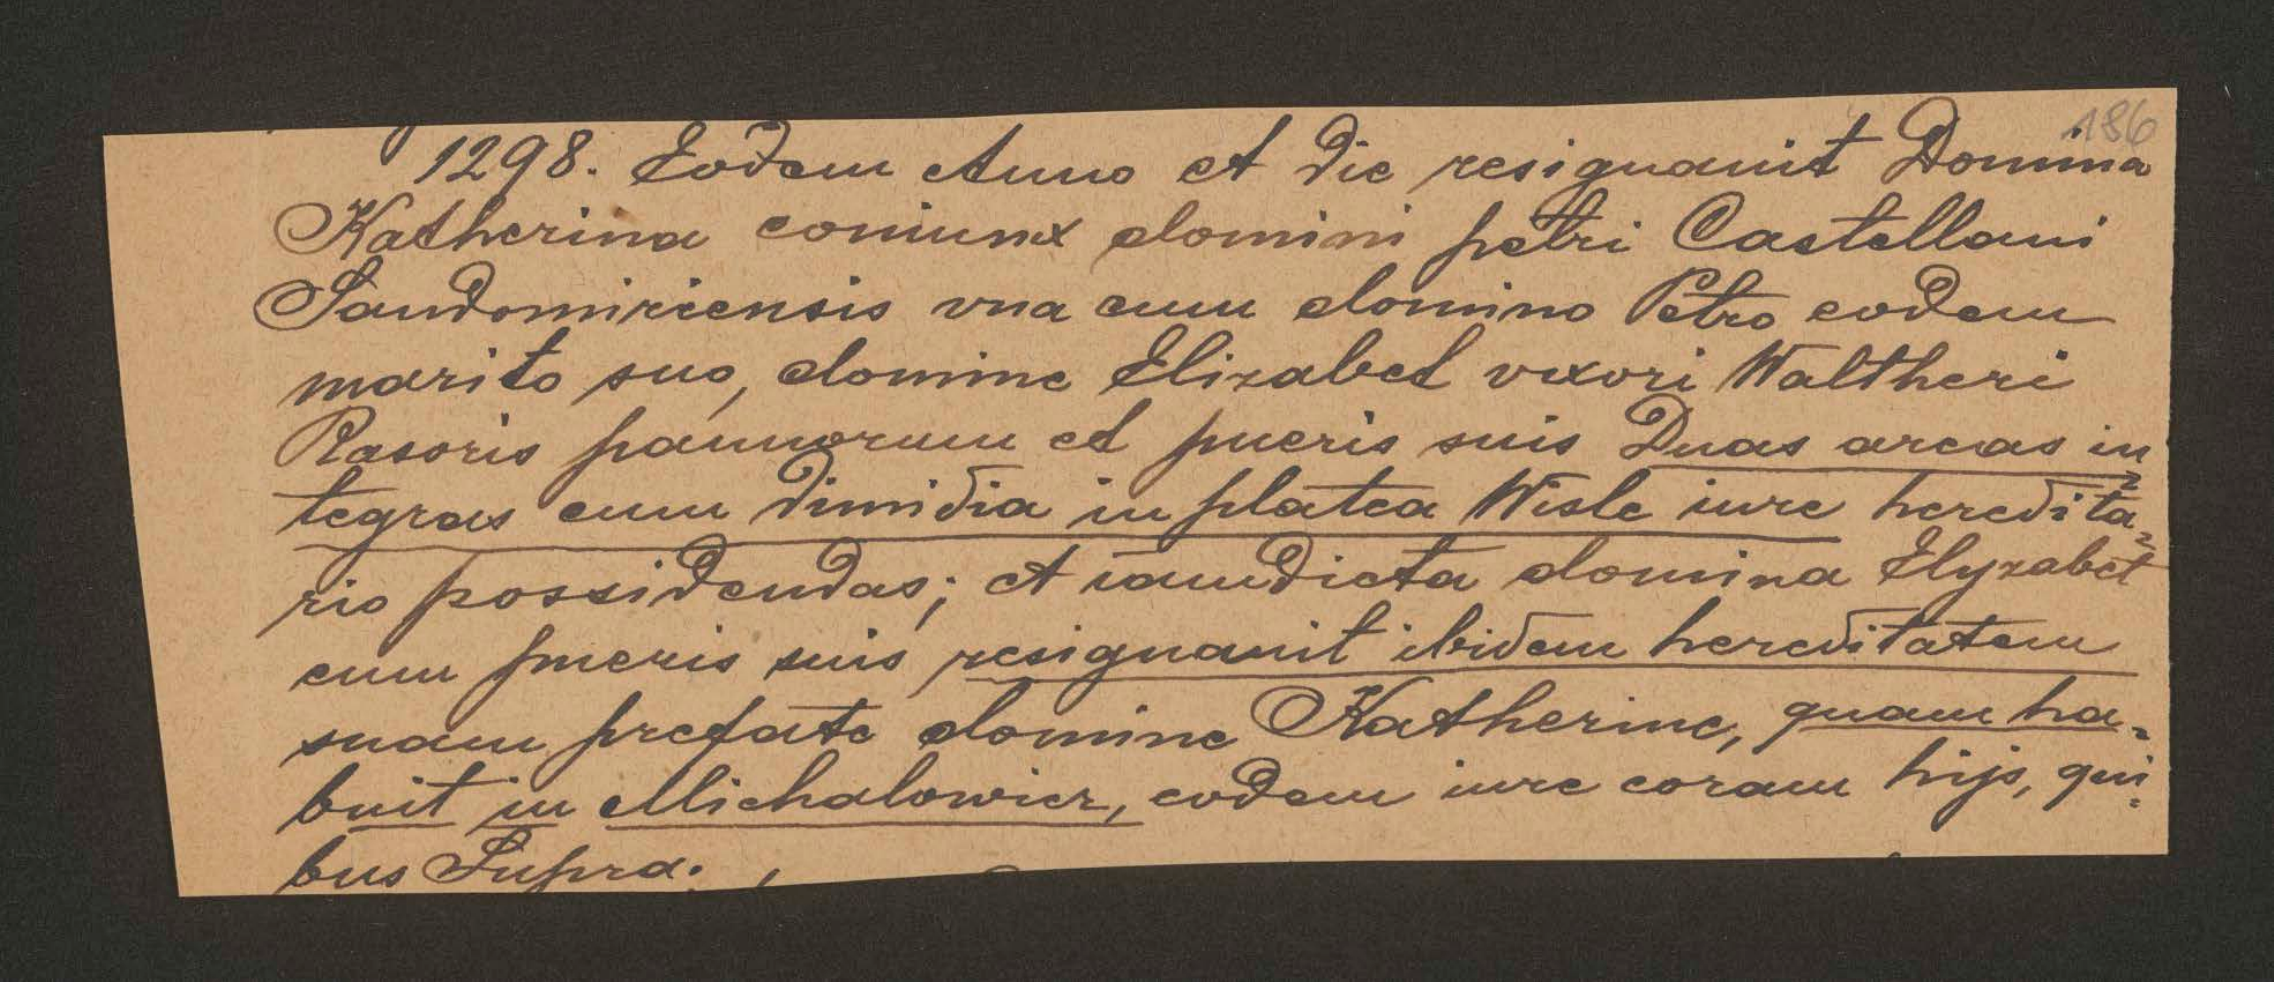 186
1298. Eodem Anno et die resignauit Domina
Katherina coniunx domini petri Castellani
Sandomiriensis vna cum domino Petro eodem
marito suo, domine Elizabet vxori Waltheri
Rasoris pannorum et pueris suis Duas areas in-
tegras cum dimidia in platea Wisle iure heredita-
rio possidendas; et iamdicta domina Elyzabet
cum pueris suis resignauit ibidem hereditatem
suam prefate domine Katherine, quam ha-
buit in Michalowicz, eodem iure coram hijs, qui-
bus Supra.